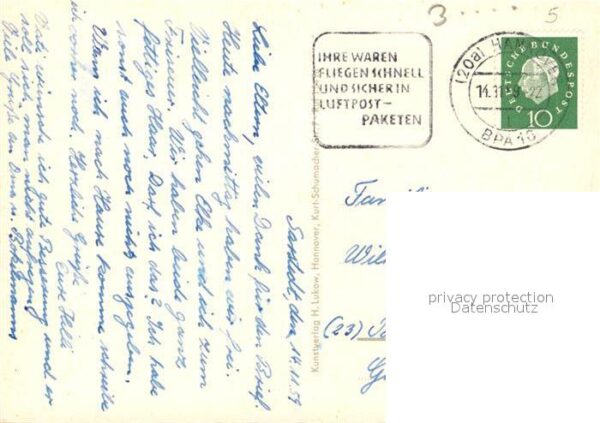 3 . . . .
5
IHRE WAREN
FLIEGEN SCHNELL
UND SICHER IN
LUFTPOST–
PAKETEN
(20a) HANNOVER
14.11.59.-22
BPA 10
DEUTSCHE BUNDESPOST
10
Sarstedt, den 14.11.59
Liebe Eltern, vielen Dank für den Brief.
Heute nachmittag haben wir frei.
Vielleicht gehen Elke und ich zum
Friseur. Wir haben beide ganz
fettiges Haar, Darf ich das? Ich habe
sonst auch noch nichts ausgegeben.
Wann ich nach Hause komme schreibe
ich vorher noch. Herzliche Grüße
Eure Helli
Vati wünsche ich gute Besserung und er
soll sich man nicht aufregen
Viele Grüße an Oma u. Bohlmanns
Kunstverlag H. Lukow, Hannover, Kurt-Schumacher
Familie
Wil
(23)
privacy protection
Datenschutz